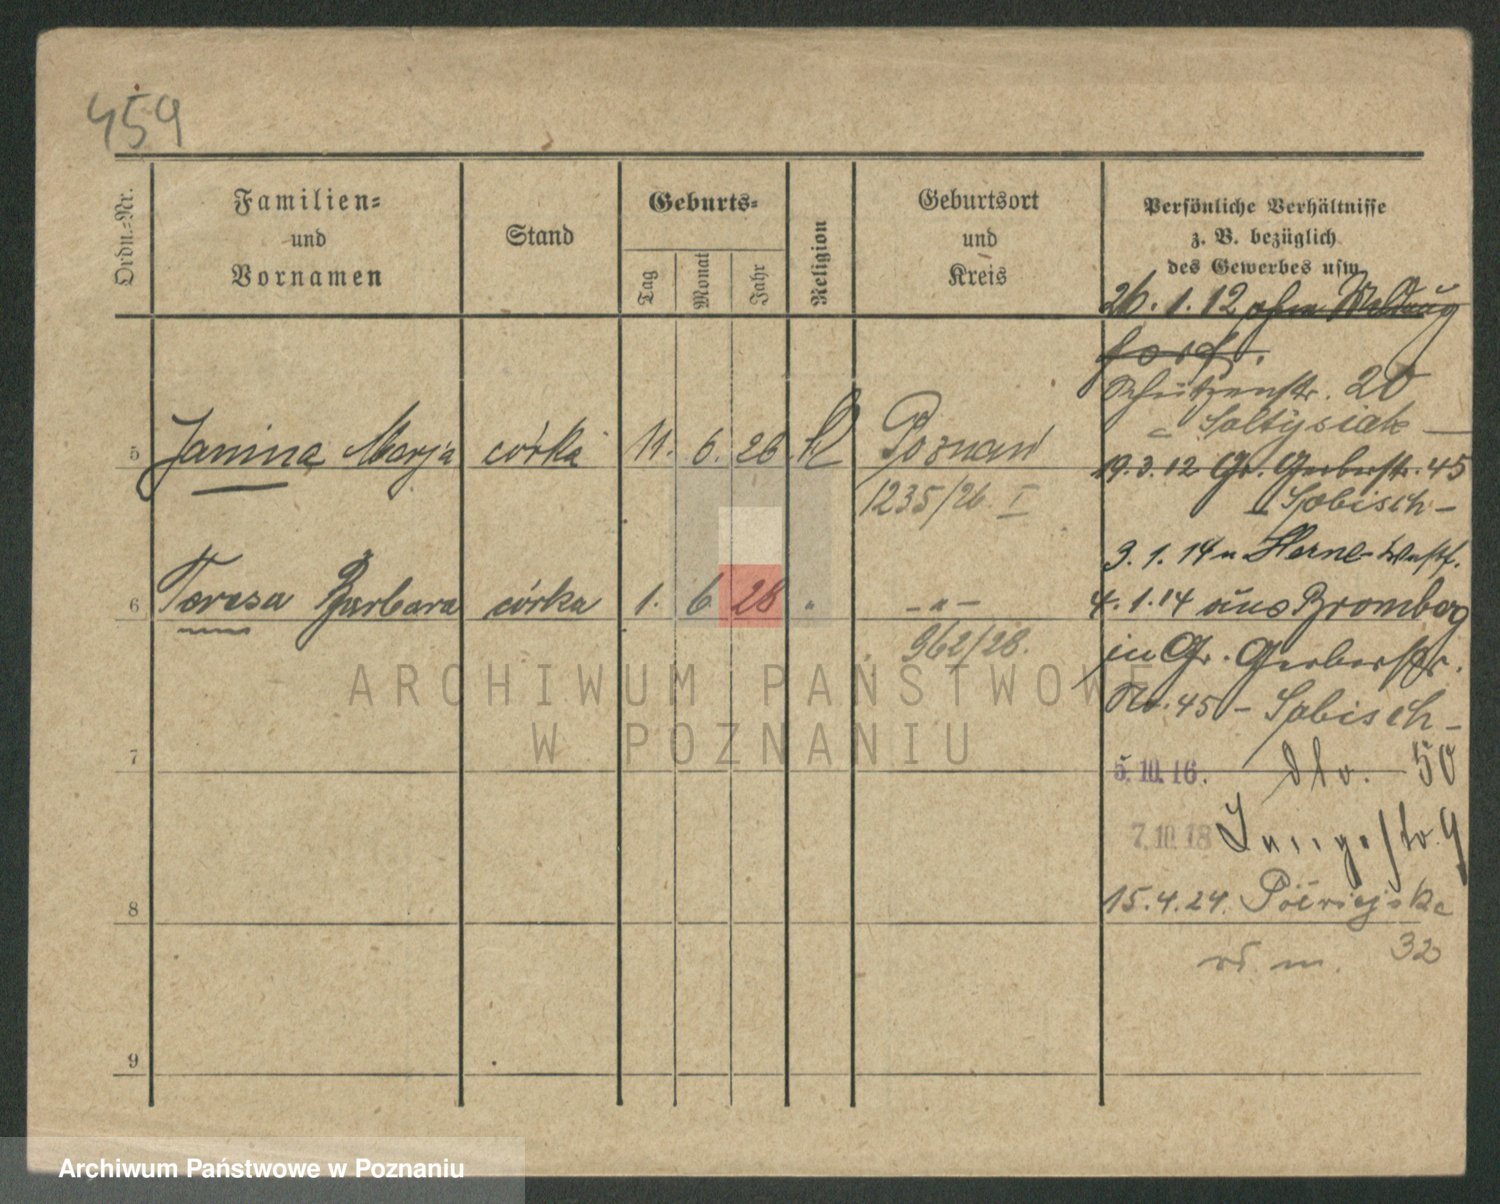 459
Ordn.-Nr.
Familien-
und
Vornamen
Stand
Geburts-
Tag
Monat
Jahr
Religion
Geburtsort
und
Kreis
Persönliche Verhältnisse
z. B. bezüglich
des Gewerbes usw.
26.1.12
Schützenstr. 20
19.3.12 Gr. Gerberstr. 45
5 Janina Marja córka 11. 6. 26 K Poznań
1235/26. I
3.1.14 n Herne-Westf.
6 Teresa Barbara córka 1. 6 28 " -"-
962/28.
4.1.14 aus Bromberg
in Gr. Gerberstr.
No. 45 -
7
5.10.16. dto. 50
7.10.18 9
8
15.4.24.
32
9
ARCHIWUM PAŃSTWOWE
W POZNANIU
Archiwum Państwowe w Poznaniu